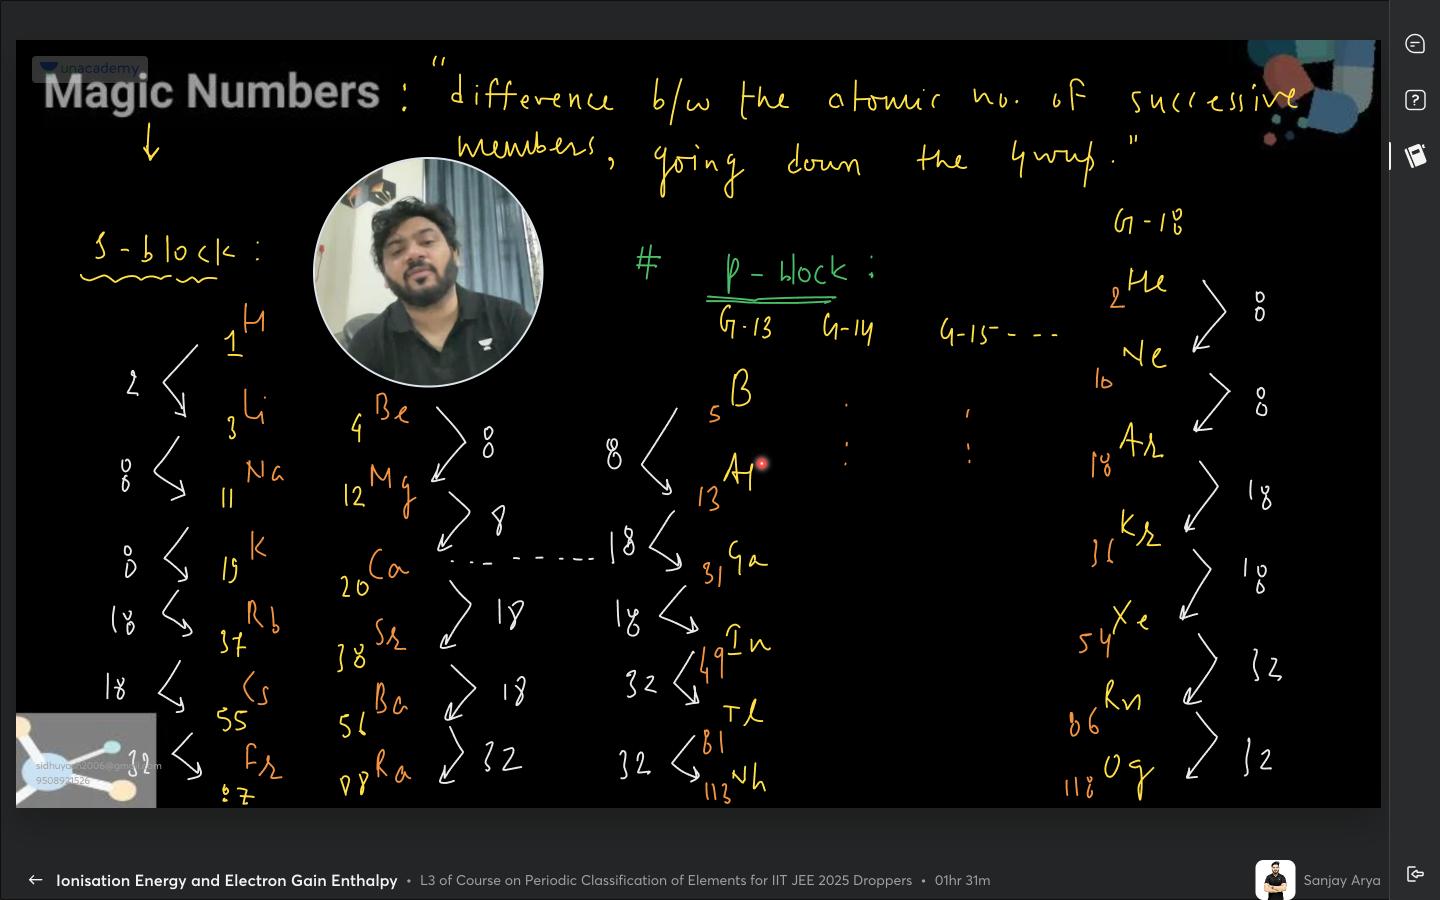 unacademy
Magic Numbers : "difference b/w the atomic no. of successive
members, going down the Group."
S-block :
# p-block :
G-18
G-13 G-14 G-15 ---
1H
2
3Li
8
11Na
8
19K
18
37Rb
18
55Cs
32
87Fr
4Be
8
12Mg
8
20Ca
18
38Sr
18
56Ba
32
88Ra
5B
8
13Al
18
31Ga
18
49In
32
81Tl
32
113Nh
2He
8
10Ne
8
18Ar
18
36Kr
18
54Xe
32
86Rn
32
118Og
9508921526
Ionisation Energy and Electron Gain Enthalpy • L3 of Course on Periodic Classification of Elements for IIT JEE 2025 Droppers • 01hr 31m
Sanjay Arya